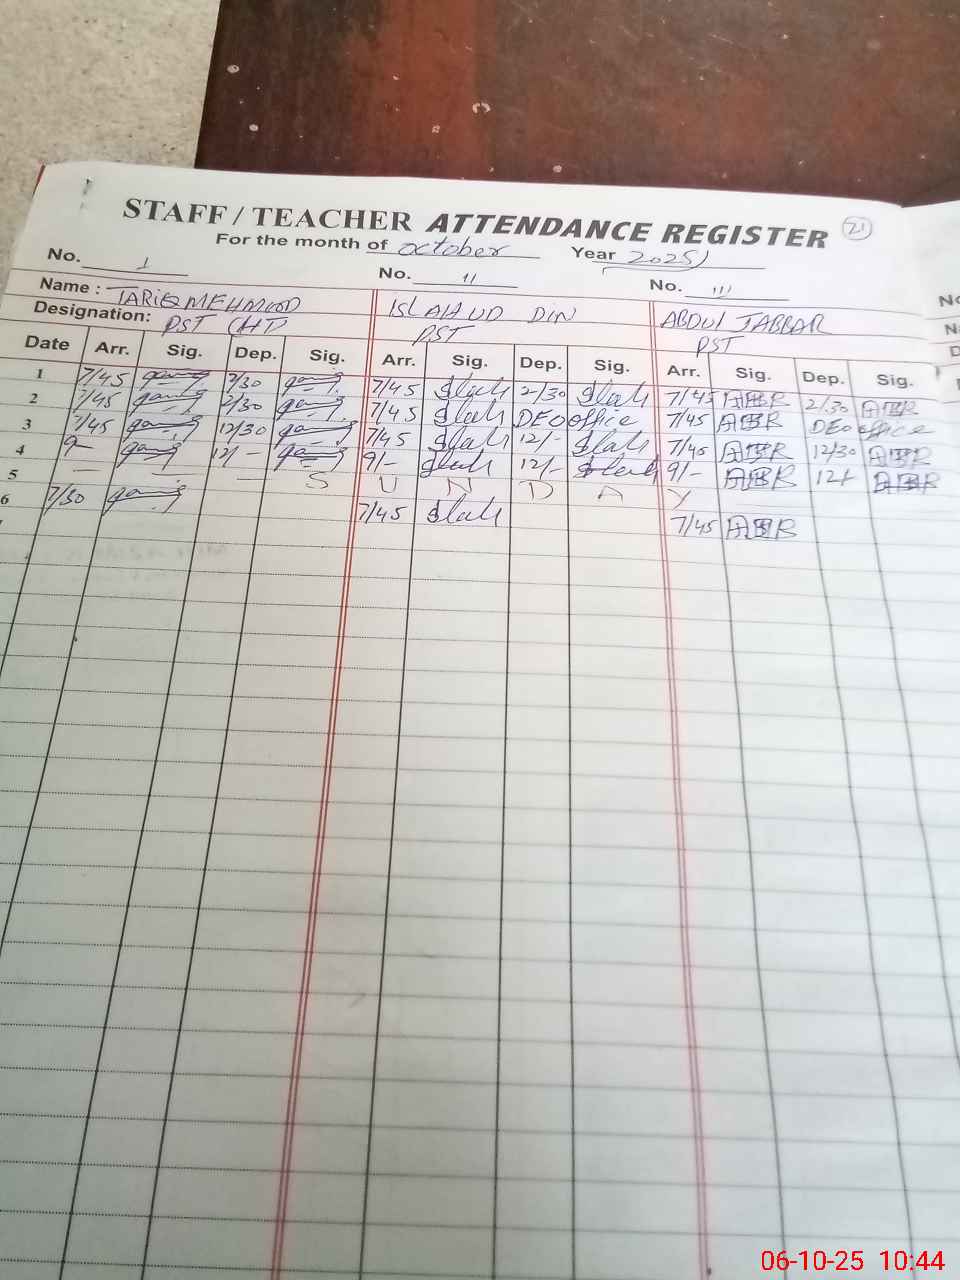 STAFF / TEACHER ATTENDANCE REGISTER 21
For the month of october Year 2025
No. 1 No. 11 No. 111
Name : TARIQ MEHMOOD ISLAH UD DIN ABDUL JABBAR
Designation: PST (HT) PST PST
Date Arr. Sig. Dep. Sig. Arr. Sig. Dep. Sig. Arr. Sig. Dep. Sig.
1 7/45 2/30 7/45 Islah 2/30 Islah 7/45 2/30
2 7/45 2/30 7/45 Islah DEO office 7/45 DEO office
3 7/45 12/30 7/45 Islah 12/- Islah 7/45 12/30
4 9- 12/- 9/- Islah 12/- Islah 9/- 12/-
5 — — — S U N D A Y
6 7/30 7/45 Islah 7/45
No
06-10-25 10:44